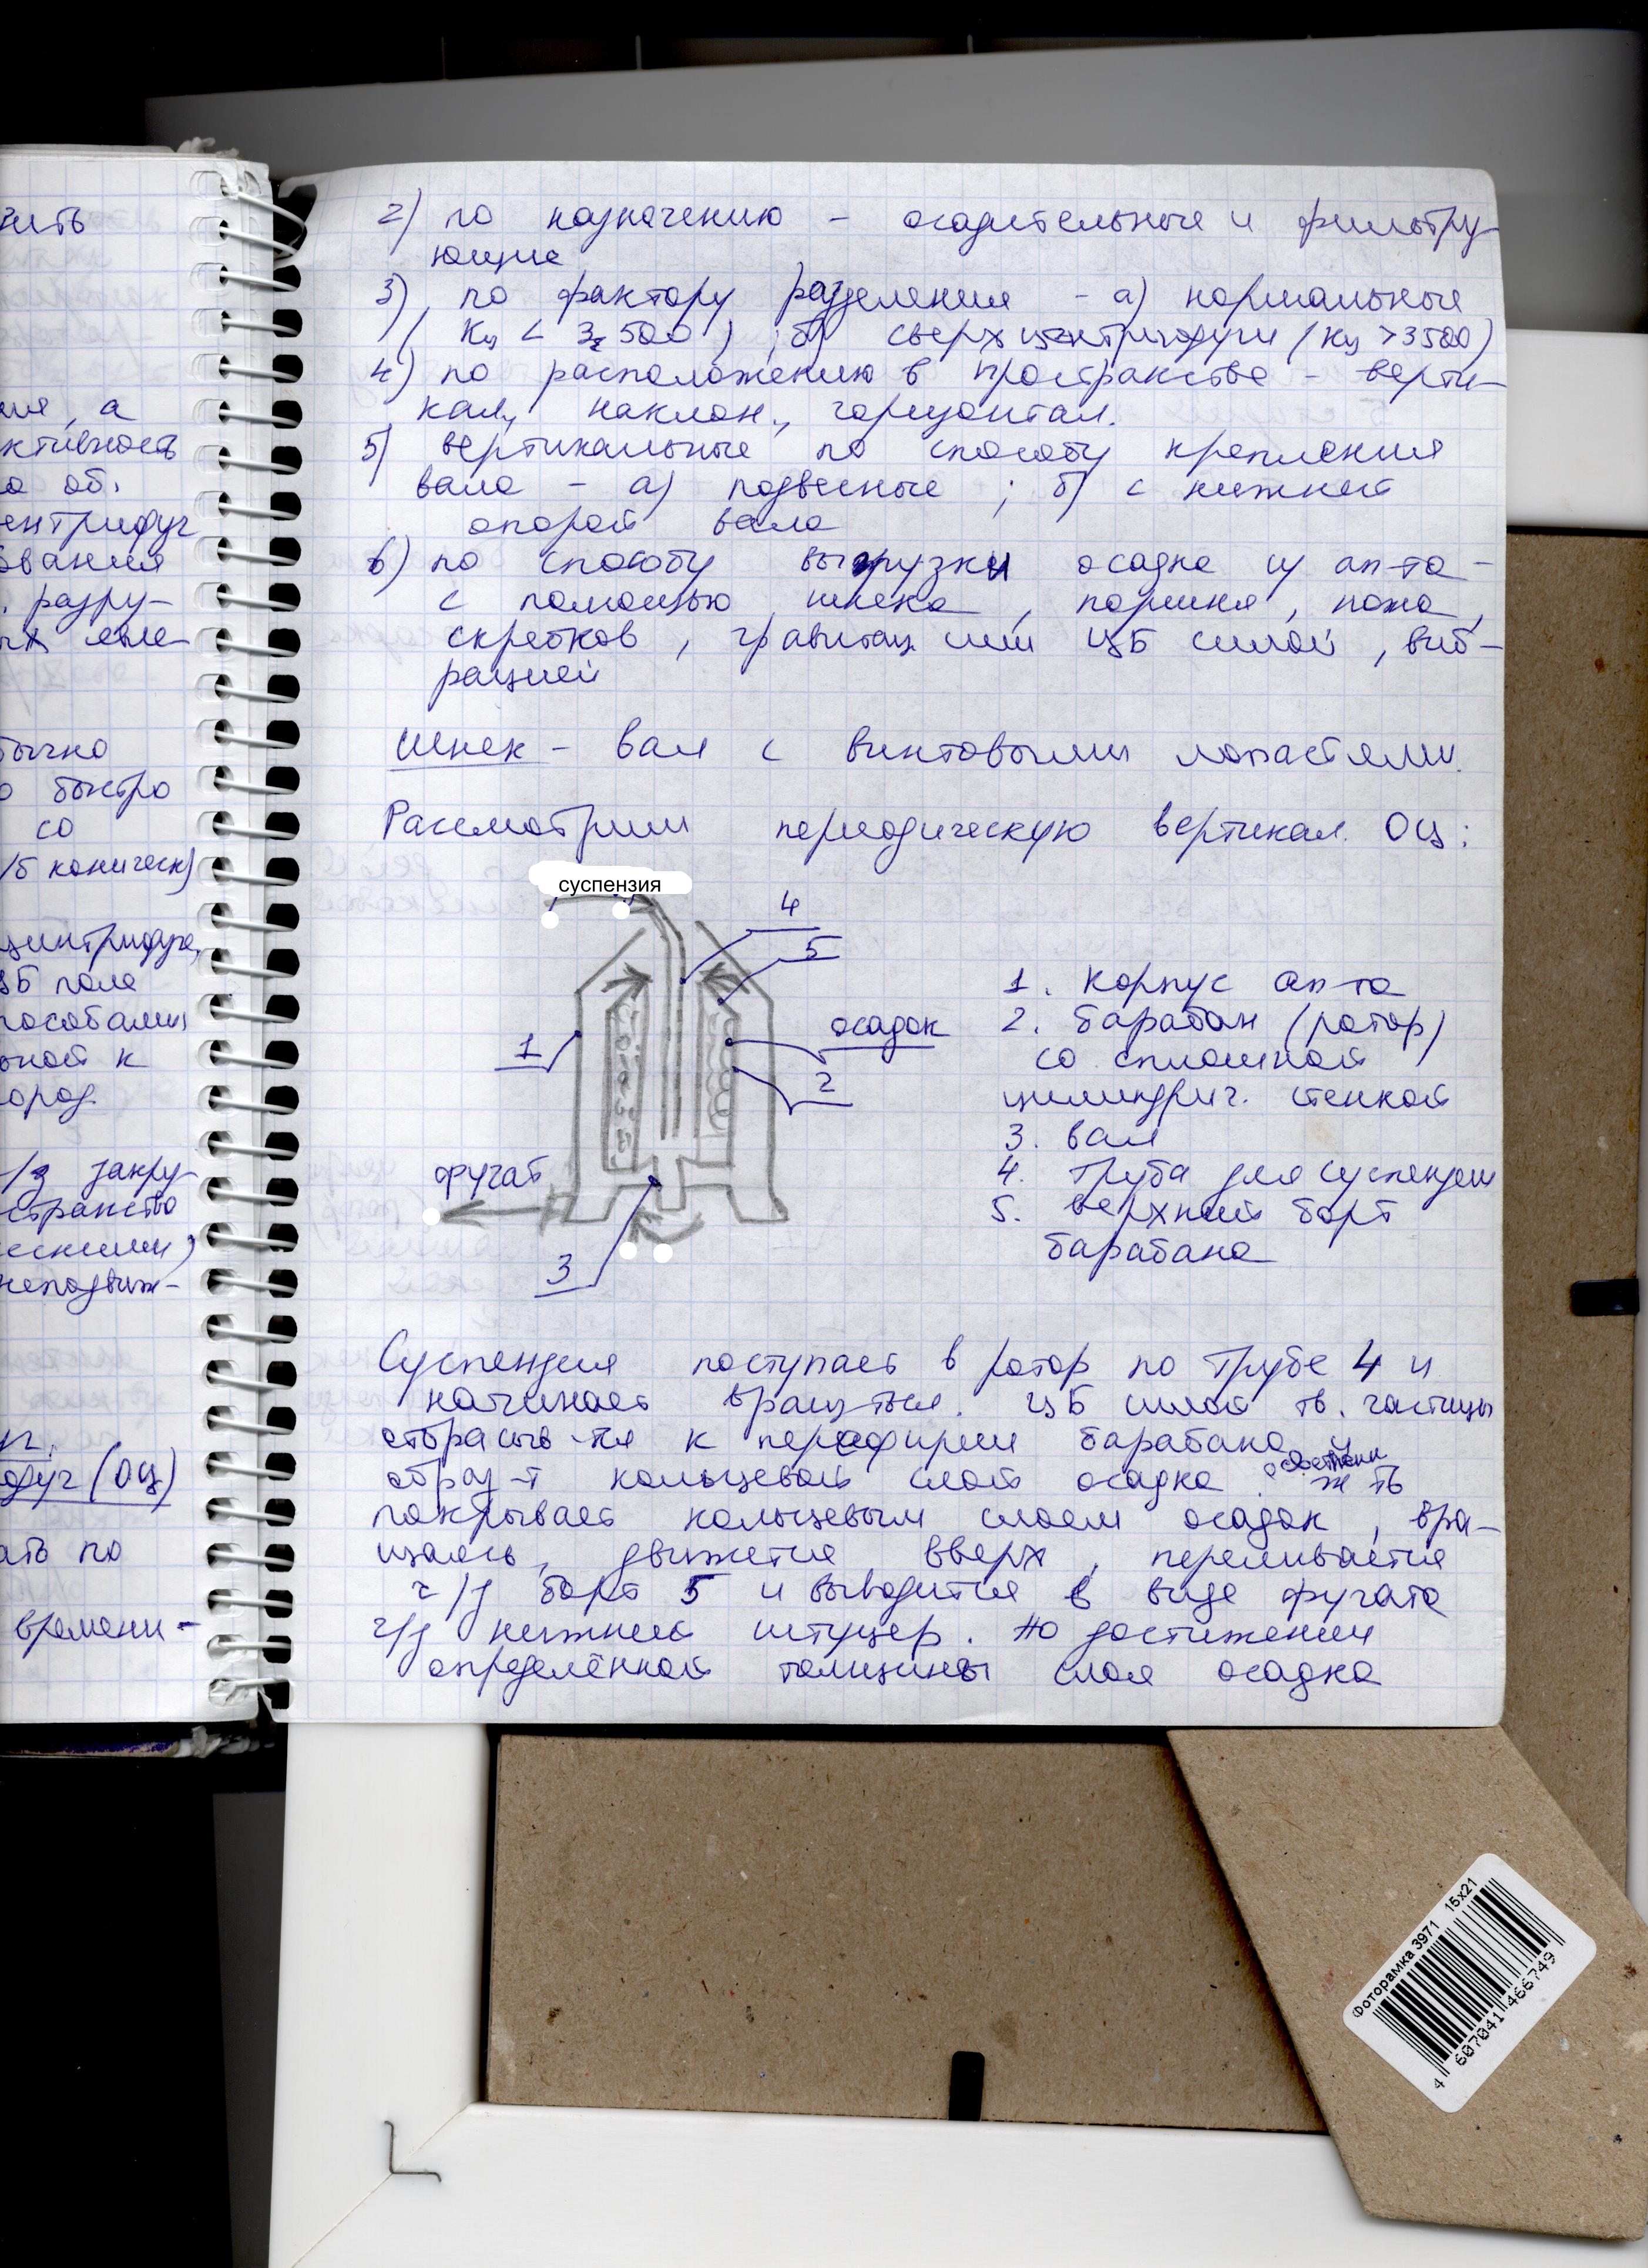 зить
ия, а
ктивность
о об.
ентрифуг
звания
. разру-
ых явле-
бычно
о быстро
со
/б коническ)
центрифуге,
ЦБ поле
пособами
ьной к
ород.
/з закру-
странство
ескими,
неподвиж-
фуг (ОЦ)
ать по
времени -
2) по назначению - осадительные и фильтру-
ющие
3) по фактору разделения - а) нормальные
( Кц < 3500 ) ; б) сверхцентрифуги ( Кц > 3500)
4) по расположению в пространстве - верти-
кал, наклон., горизонтал.
5) вертикальные по способу крепления
вала - а) подвесные ; б) с нижней
опорой вала
6) по способу выгрузки осадка из ап-та -
с помощью шнека, поршня, ножа,
скребков, гравитац. или ЦБ силой, виб-
рацией
Шнек - вал с винтовыми лопастями.
Рассмотрим периодическую вертикал. ОЦ:
суспензия
4
5
осадок
1
2
фугат
3
1. Корпус ап-та
2. барабан (ротор)
со сплошной
цилиндрич. стенкой
3. вал
4. Труба для суспензии
5. верхний борт
барабана
Суспензия поступает в ротор по трубе 4 и
начинает вращаться. ЦБ силой тв. частицы
отбрасыв-тся к переферии барабана и
образ-т кольцевой слой осадка. Жть
покрывает кольцевым слоем осадок, вра-
щаясь, движется вверх, переливается
ч/з борт 5 и выводится в виде фугата
ч/з нижний штуцер. По достижении
определённой толщины слоя осадка
Фоторамка 3971 15х21
4 607041 466749